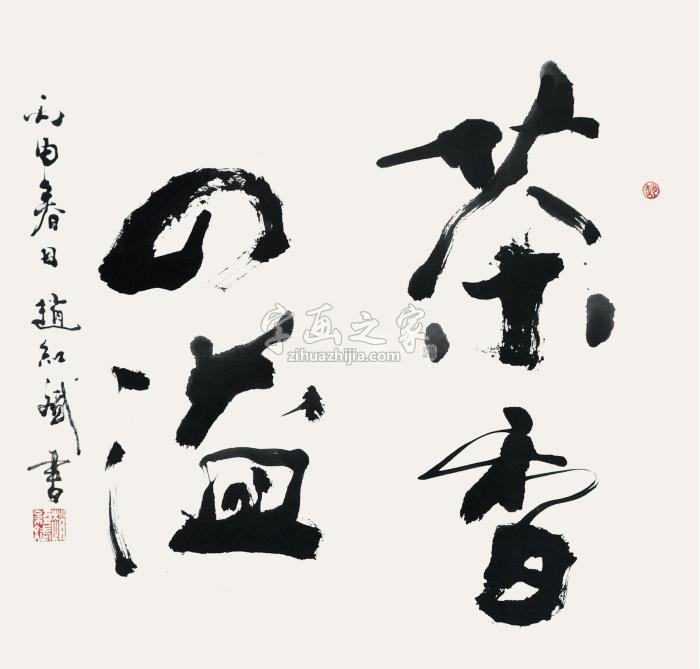 茶香
四溢
丙申春日 趙紅 書
字画之家
zihuazhijia.com